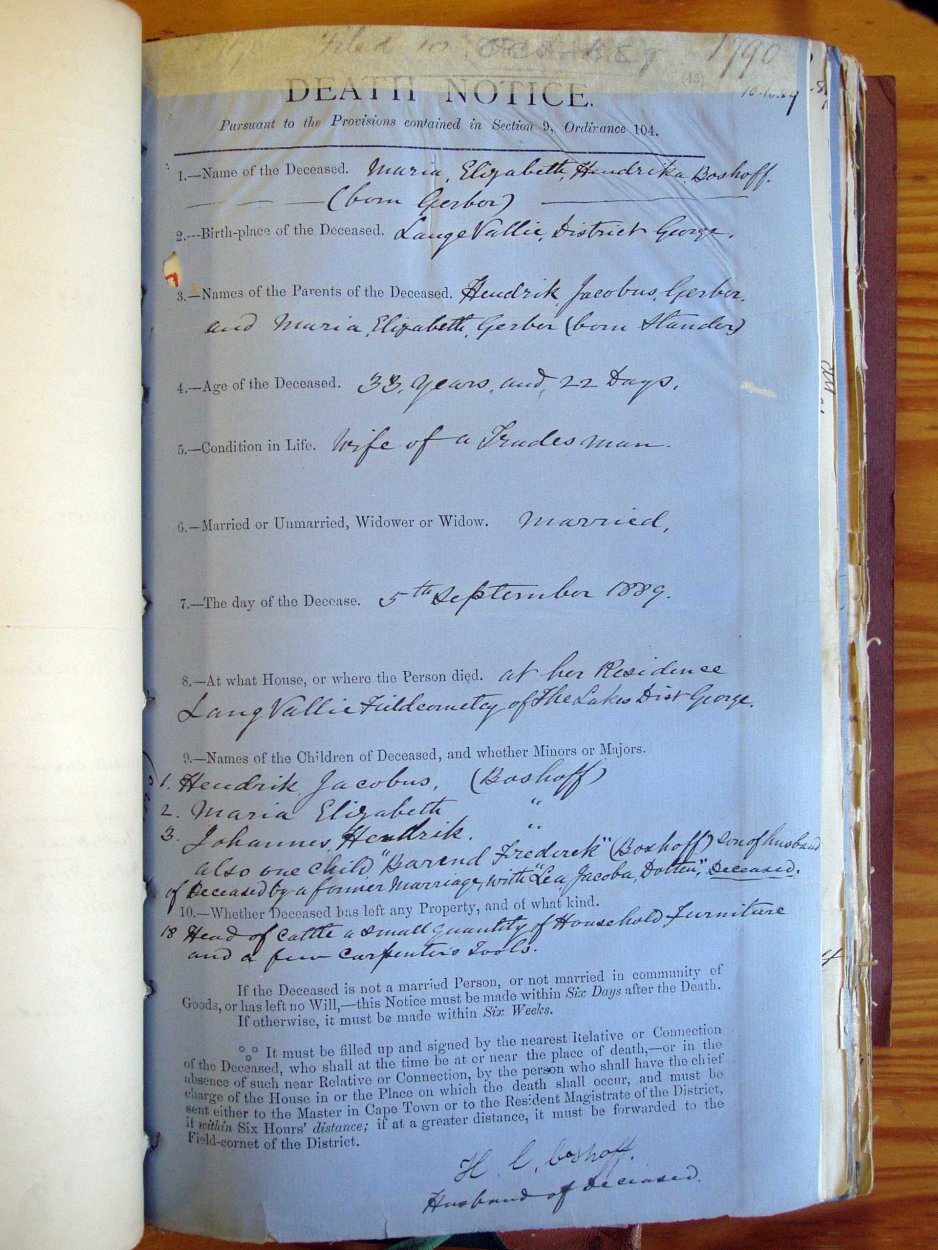 Filed 10 Oct 1889 1790
10.10.89
DEATH NOTICE.
Pursuant to the Provisions contained in Section 9, Ordinance 104.
1.—Name of the Deceased. Maria, Elizabeth, Hendrika Boshoff.
(born Gerber)
2.—Birth-place of the Deceased. Lange Vallie, District George.
3.—Names of the Parents of the Deceased. Hendrik, Jacobus, Gerber,
and Maria Elizabeth, Gerber (born Stander)
4.—Age of the Deceased. 33, years, and, 22 Days.
5.—Condition in Life. Wife of a Tradesman
6.—Married or Unmarried, Widower or Widow. Married,
7.—The day of the Decease. 5th September 1889.
8.—At what House, or where the Person died. at her Residence
Lang Vallie Fieldcornetcy of The Lakes Dist George.
9.—Names of the Children of Deceased, and whether Minors or Majors.
1. Hendrik, Jacobus, (Boshoff)
2. Maria Elizabeth "
3. Johannes, Hendrik. "
also one child "Barend Frederek" (Boshoff) son of husband
of Deceased by a former Marriage, with "Lea Jacoba Dotten", Deceased.
10.—Whether Deceased has left any Property, and of what kind.
18 Head of Cattle a small quantity of Household Furniture
and a few Carpenter's Tools.
If the Deceased is not a married Person, or not married in community of
Goods, or has left no Will,—this Notice must be made within Six Days after the Death.
If otherwise, it must be made within Six Weeks.
It must be filled up and signed by the nearest Relative or Connection
of the Deceased, who shall at the time be at or near the place of death,—or in the
absence of such near Relative or Connection, by the person who shall have the chief
charge of the House in or the Place on which the death shall occur, and must be
sent either to the Master in Cape Town or to the Resident Magistrate of the District,
if within Six Hours' distance; if at a greater distance, it must be forwarded to the
Field-cornet of the District.
H. C. Boshoff.
Husband of Deceased.